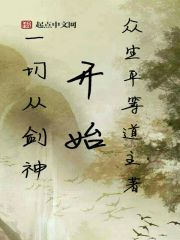 起点中文网
一切从剑神
开始
众生平等道主著